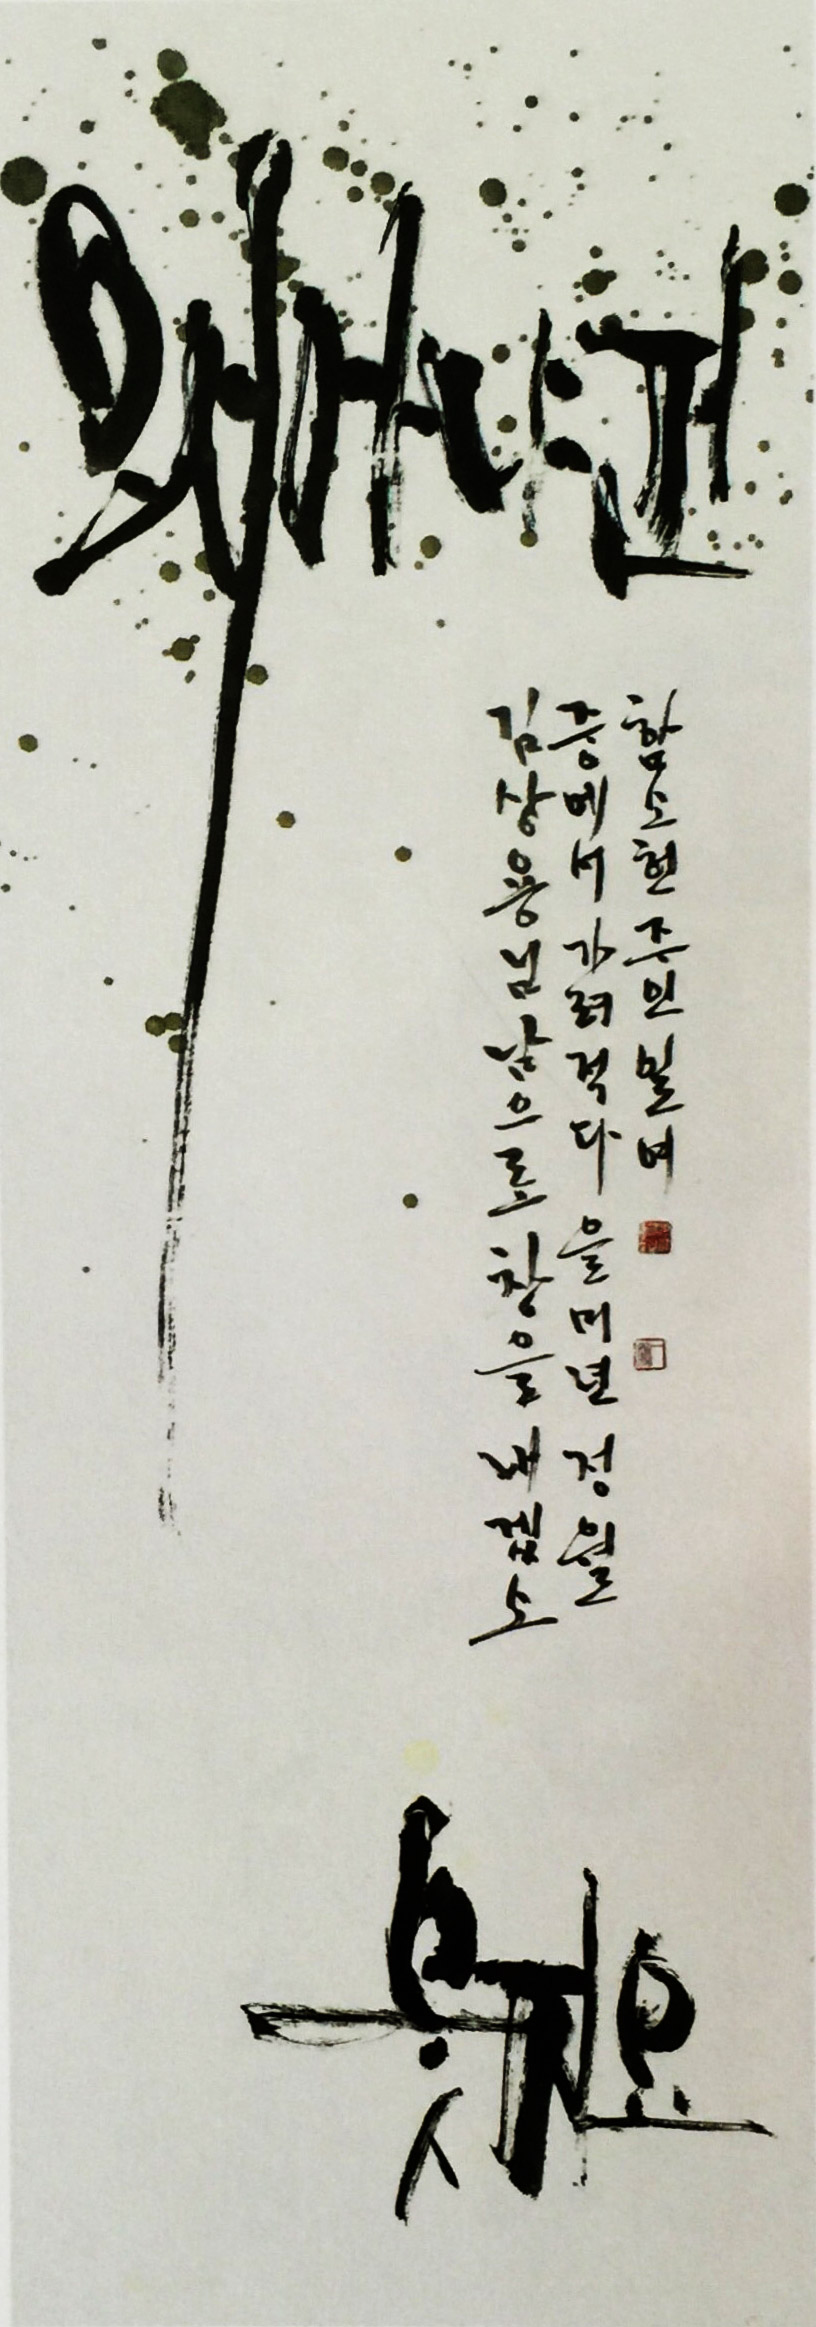 왜 사냐건
김상용님 남으로 창을 내겠소
중에서 가려 적다 을미년 정월
함소헌 주인 일여
웃지요